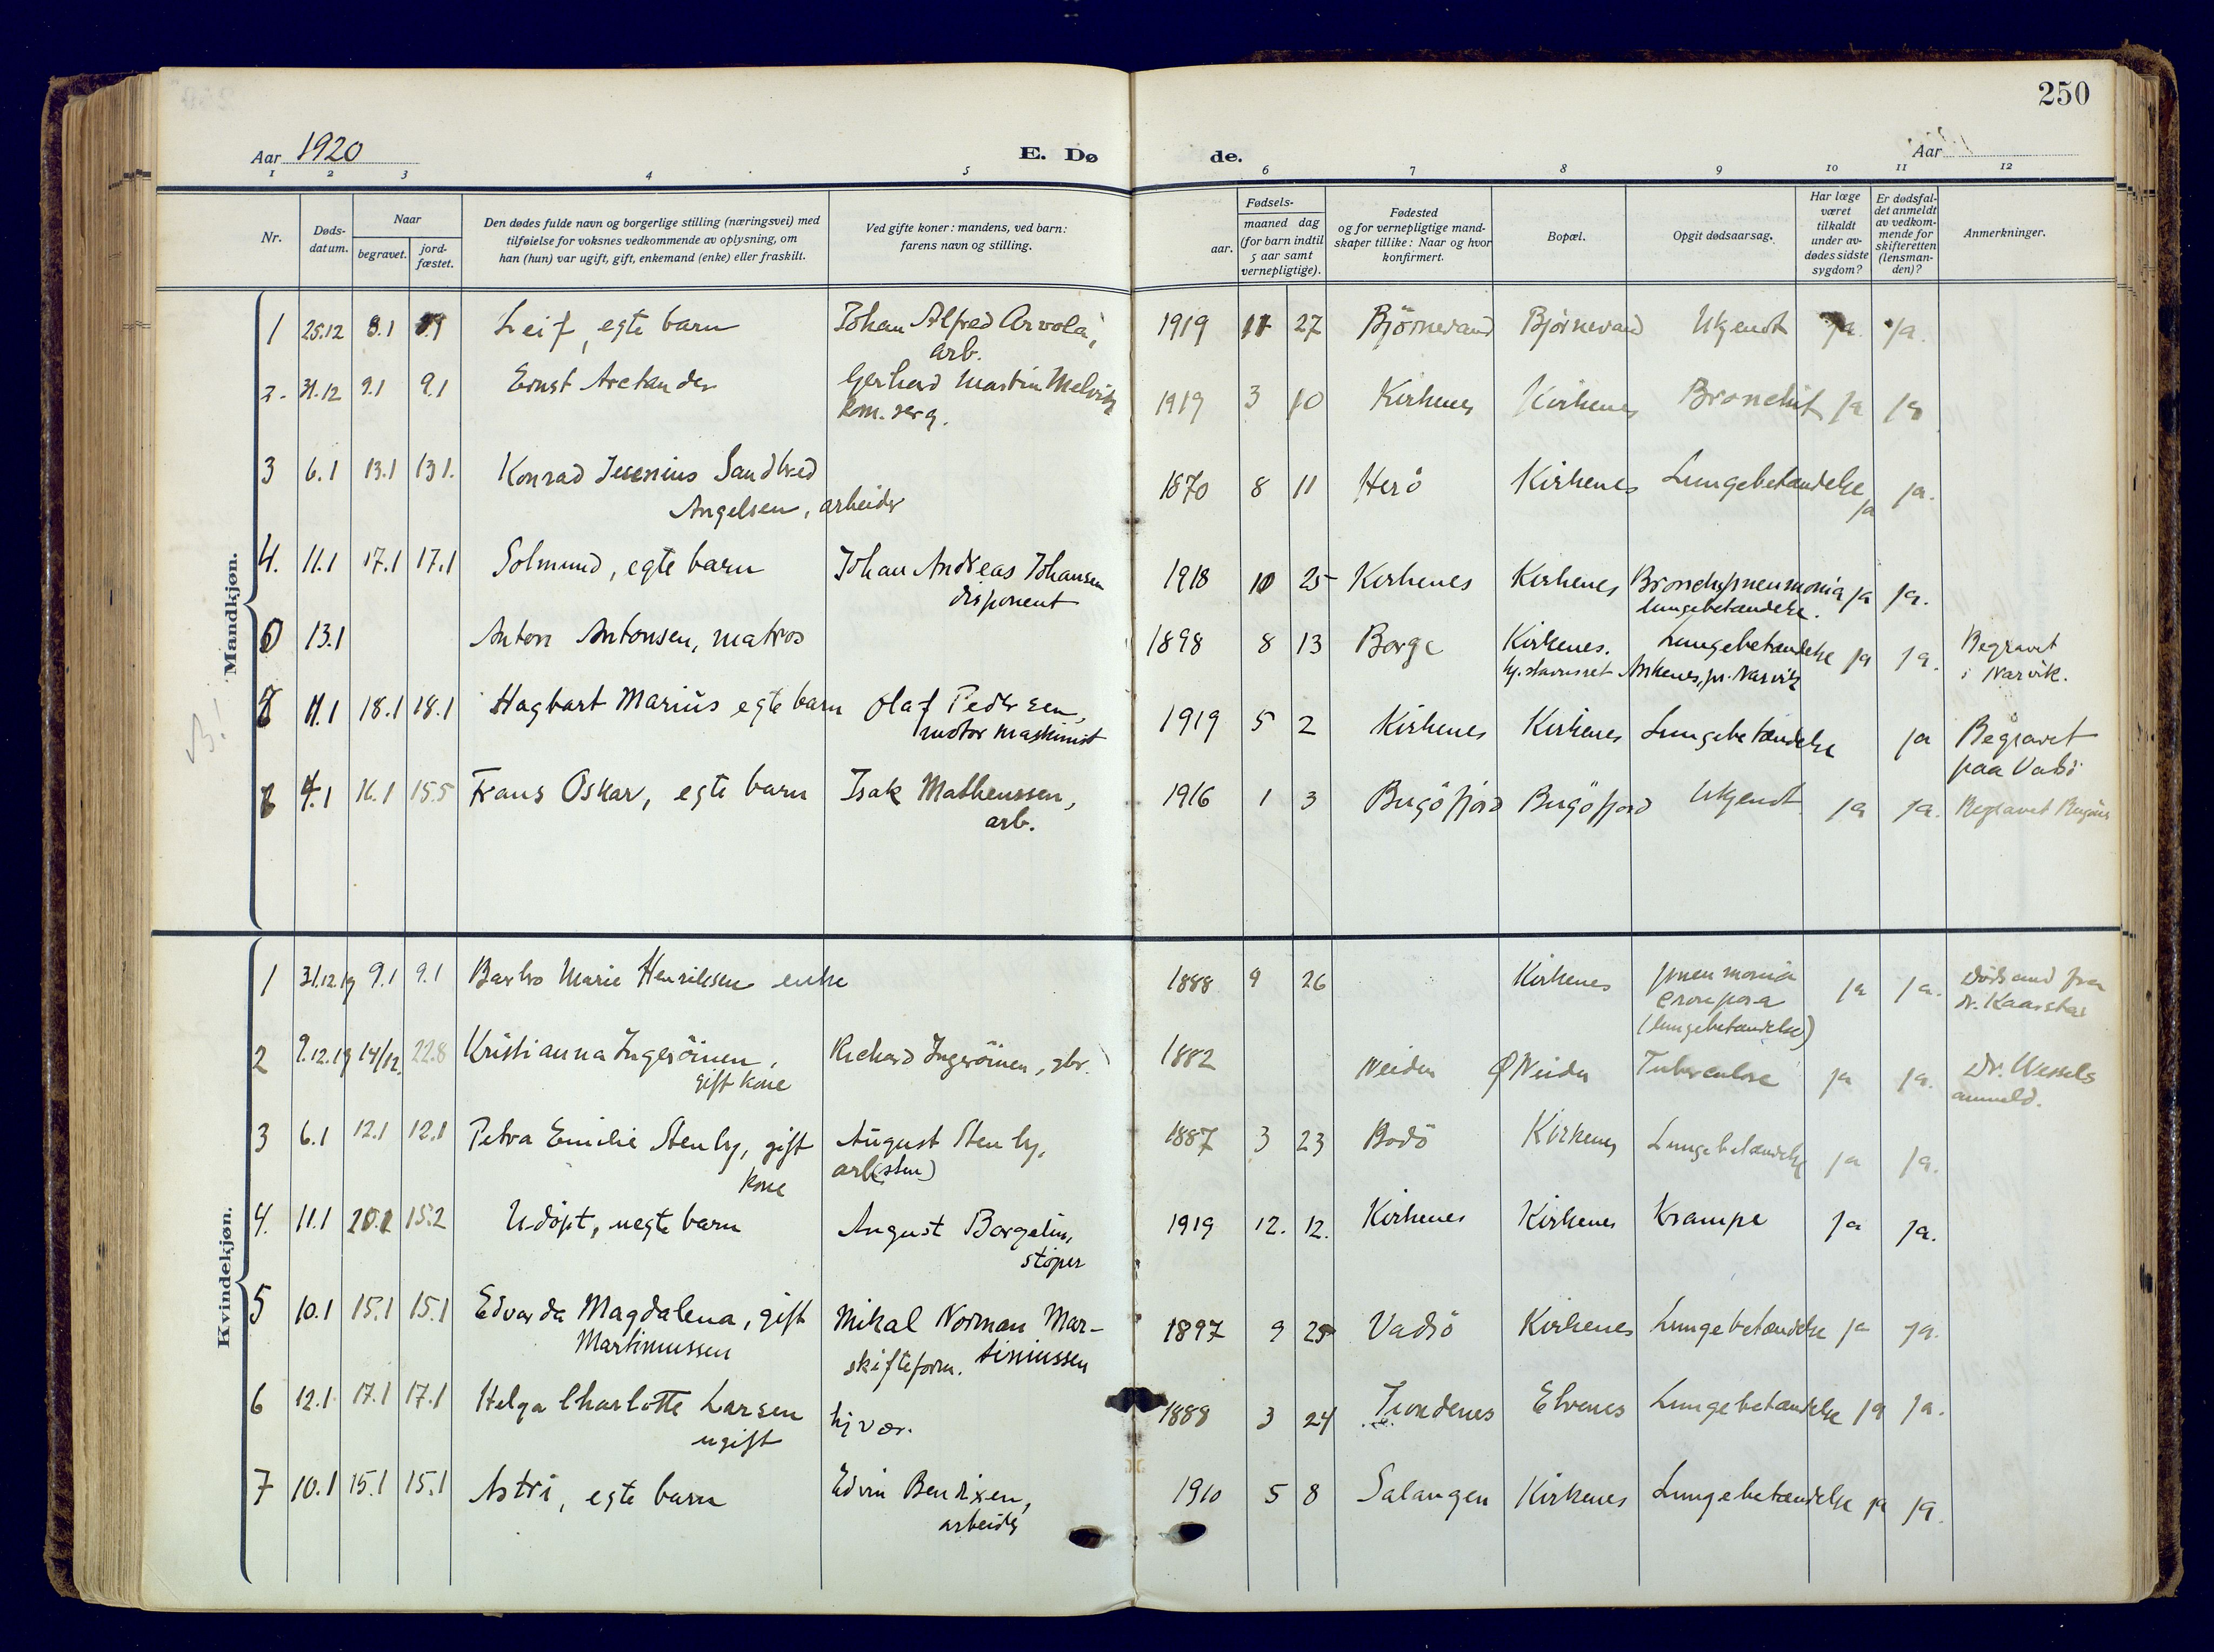 250
Aar 1920
E. Dø
de.
Aar
1 2 3 4 5 6 7 8 9 10 11 12
Nr.
Døds-
datum.
Naar
begravet.
jord-
fæstet.
Den dødes fulde navn og borgerlige stilling (næringsvei) med
tilføielse for voksnes vedkommende av oplysning, om
han (hun) var ugift, gift, enkemand (enke) eller fraskilt.
Ved gifte koner: mandens, ved barn:
farens navn og stilling.
Fødsels-
aar.
maaned dag
(for barn indtil
5 aar samt
vernepligtige).
Fødested
og for vernepligtige mand-
skaper tillike: Naar og hvor
konfirmert.
Bopæl.
Opgit dødsaarsag.
Har læge
været
tilkaldt
under av-
dødes sidste
sygdom?
Er dødsfal-
det anmeldt
av vedkom-
mende for
skifteretten
(lensman-
den)?
Anmerkninger.
Mandkjøn.
1 25.12 9.1 Leif, egte barn Johan Alfred Arvola, 1919 11 27 Björnevand Björnevand Ukjendt ja. ja.
arb.
2. 31.12 9.1 9.1 Ernst Arctander Gerhard Martin 1919 3 10 Kirkenes Kirkenes Bronchit ja ja
3 6.1 13.1 13.1. Konrad Sandbred 1870 8 11 Herö Kirkenes Lungebetændelse ja ja.
Angelsen, arbeider
4. 11.1 17.1 17.1 Solmund, egte barn Johan Andreas Johansen 1918 10 25 Kirkenes Kirkenes Bronchypneumonia ja ja.
disponent lungebetændelse.
13.1 Anton Antonsen, matros 1898 8 13 Borge Kirkenes. Lungebetændelse ja ja. Begravet
Ankenes, pr. Narvik i Narvik.
11.1 18.1 18.1 Hagbart Marius egte barn Olaf Pedersen, 1919 5 2 Kirkenes Kirkenes Lungebetændelse ja Begravet
motormaskinist paa Vadsö
4.1 16.1 15.5 Frans Oskar, egte barn Isak Matheussen, 1916 1 3 Bugöfjord Bugöfjord Ukjendt ja ja. Begravet
arb.
Kvindekjøn.
1 31.12.19 9.1 9.1 Barbro Marie Henriksen enke 1888 9 26 Kirkenes pneumonia ja ja.
crouposa
(lungebetændelse)
2 9.12.19 14/12. 22.8 Kristianna Ingeröinen, Richard Ingeröinen, gbr. 1882 Neiden Neiden Tuberculose ja ja. Dr. Wessels
gift kone anmeld.
3 6.1 12.1 12.1 Petra Emilie Stenby, gift August Stenby, 1887 3 23 Bodö Kirkenes Lungebetændelse ja ja.
kone arb.
4. 11.1 20.1 15.2 Udöpt, uegte barn August Borgelin, 1919 12. 12. Kirkenes Kirkenes Krampe ja ja.
stöper
5 10.1 15.1 15.1 Edvarda Magdalena, gift Mikal Norman Mar- 1897 9 Vadsö Kirkenes Lungebetændelse ja ja.
Martinussen skifteform. tinussen
6 12.1 17.1 17.1 Helga Charlotte Larsen hj vær. 1889 3 24 Trondenes Elvenes Lungebetændelse ja ja.
ugift
7 10.1 15.1 15.1 Astri, egte barn Edvin Bendixen, 1910 5 8 Salangen Kirkenes Lungebetændelse ja ja.
arbeider